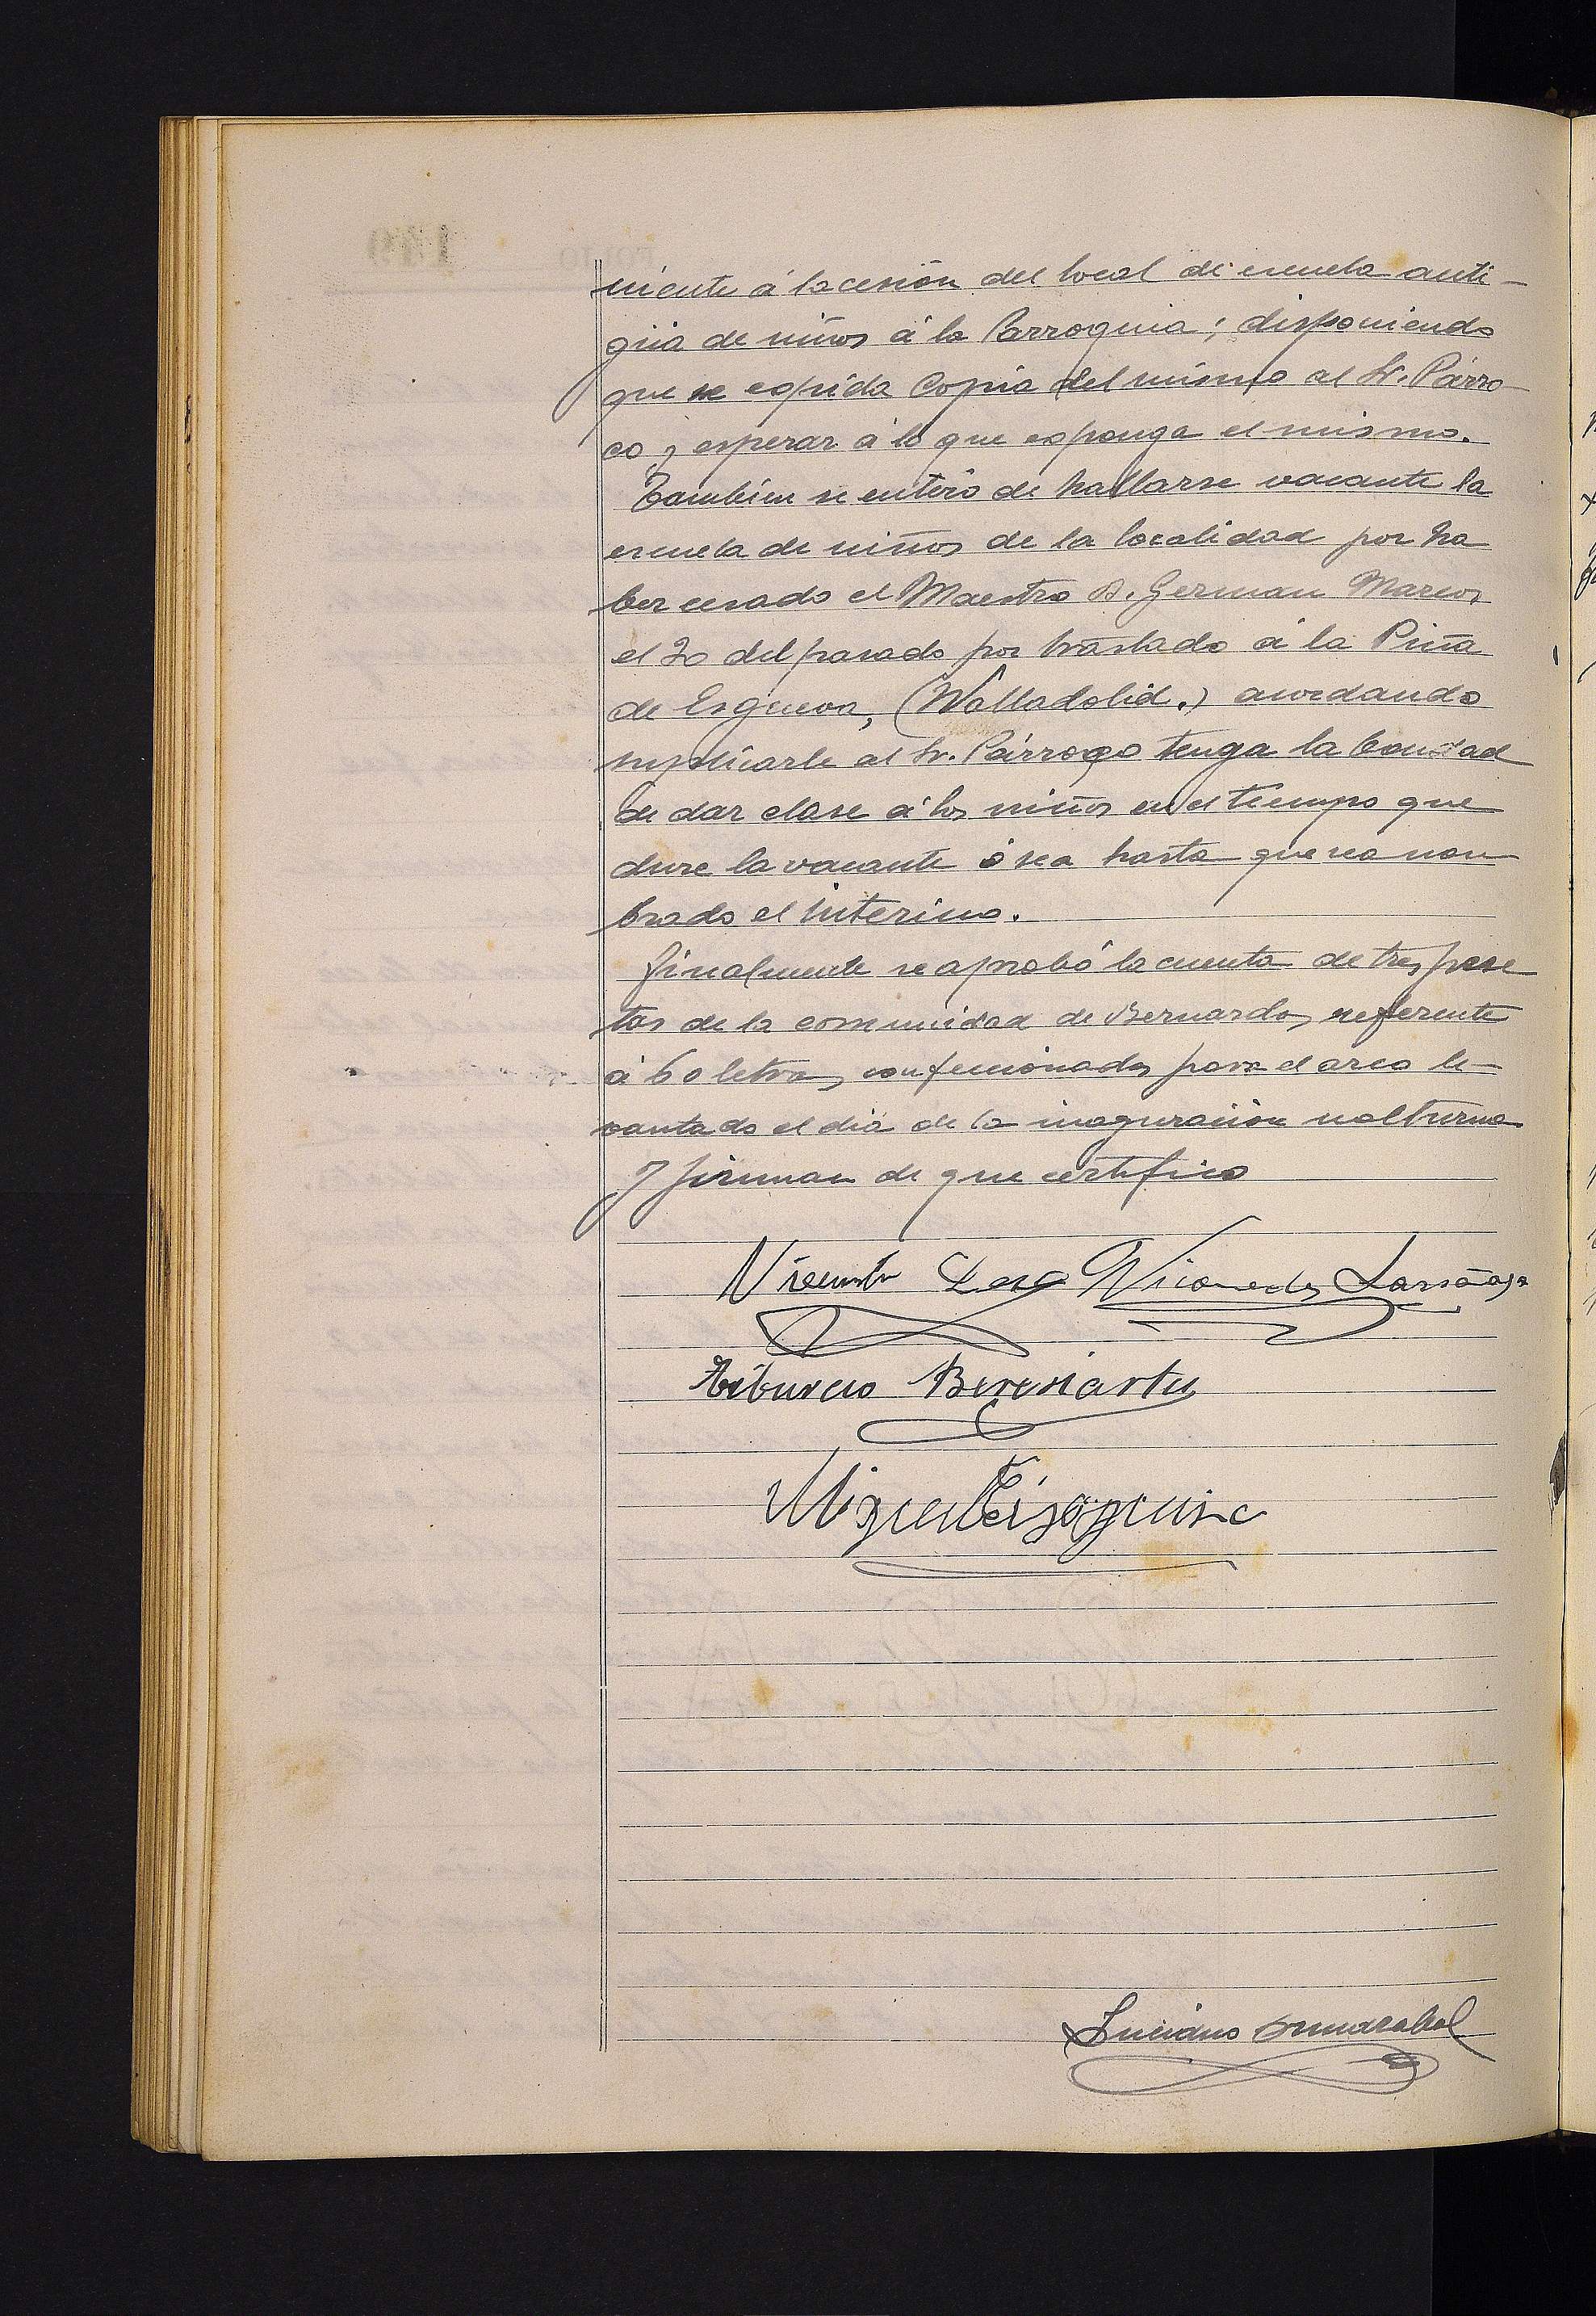 niente á la cesión del local de escuela anti-
gua de niños á la Parroquia; disponiendo
que se expida Copia del mismo al Sr. Párro-
co y esperar á lo que exponga el mismo.
Tambien se enteró de hallarse vacante la
escuela de niños de la localidad por ha
ber cesado el Maestro D. German Marcos
el 20 del pasado por traslado á la Piña
de Esgueva, (Walladolid.) acordando
suplicarle al Sr. Párroco tenga la bondad
de dar clase á los niños en el tiempo que
dure la vacante ó sea hasta que sea nom
brado el interino.
Finalmente se aprobó la cuenta de tres pese
tas de la comunidad de Bernardos, referente
á 60 letras, confeccionadas para el arco le-
vantado el dia de la inaguración nolturna
y firman de que certifico
Vicente Nicomedes Larrañaga
Tiburcio Beresiartu
Miguel
Luciano